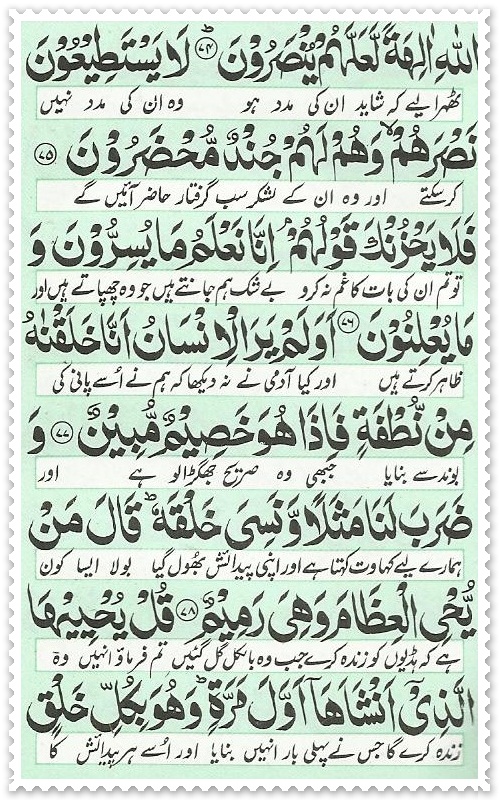 اللّٰهِ اٰلِهَةً لَّعَلَّهُمْ يُنْصَرُوْنَ ﴿۷۴﴾ لَا يَسْتَطِيْعُوْنَ
ٹھہرا لیے کہ شاید ان کی مدد ہو وہ ان کی مدد نہیں
نَصْرَهُمْ وَهُمْ لَهُمْ جُنْدٌ مُّحْضَرُوْنَ ﴿۷۵﴾
کر سکتے اور وہ ان کے لشکر سب گرفتار حاضر آئیں گے
فَلَا يَحْزُنْكَ قَوْلُهُمْ ۘ اِنَّا نَعْلَمُ مَا يُسِرُّوْنَ وَ
تو تم ان کی بات کا غم نہ کرو بے شک ہم جانتے ہیں جو وہ چھپاتے ہیں اور
مَا يُعْلِنُوْنَ ﴿۷۶﴾ اَوَلَمْ يَرَ الْاِنْسَانُ اَنَّا خَلَقْنٰهُ
ظاہر کرتے ہیں اور کیا آدمی نے نہ دیکھا کہ ہم نے اُسے پانی کی
مِنْ نُّطْفَةٍ فَاِذَا هُوَ خَصِيْمٌ مُّبِيْنٌ ﴿۷۷﴾ وَ
بوند سے بنایا جبھی وہ صریح جھگڑالو ہے اور
ضَرَبَ لَنَا مَثَلًا وَّنَسِىَ خَلْقَهٗ ؕ قَالَ مَنْ
ہمارے لیے کہاوت کہتا ہے اور اپنی پیدائش بھول گیا بولا ایسا کون
يُّحْىِ الْعِظَامَ وَهِىَ رَمِيْمٌ ﴿۷۸﴾ قُلْ يُحْيِيْهَا
ہے کہ ہڈیوں کو زندہ کرے جب وہ بالکل گل گئیں تم فرماؤ انہیں وہ
الَّذِىْۤ اَنْشَاَهَاۤ اَوَّلَ مَرَّةٍ ؕ وَهُوَ بِكُلِّ خَلْقٍ
زندہ کرے گا جس نے پہلی بار انہیں بنایا اور اُسے ہر پیدائش کا